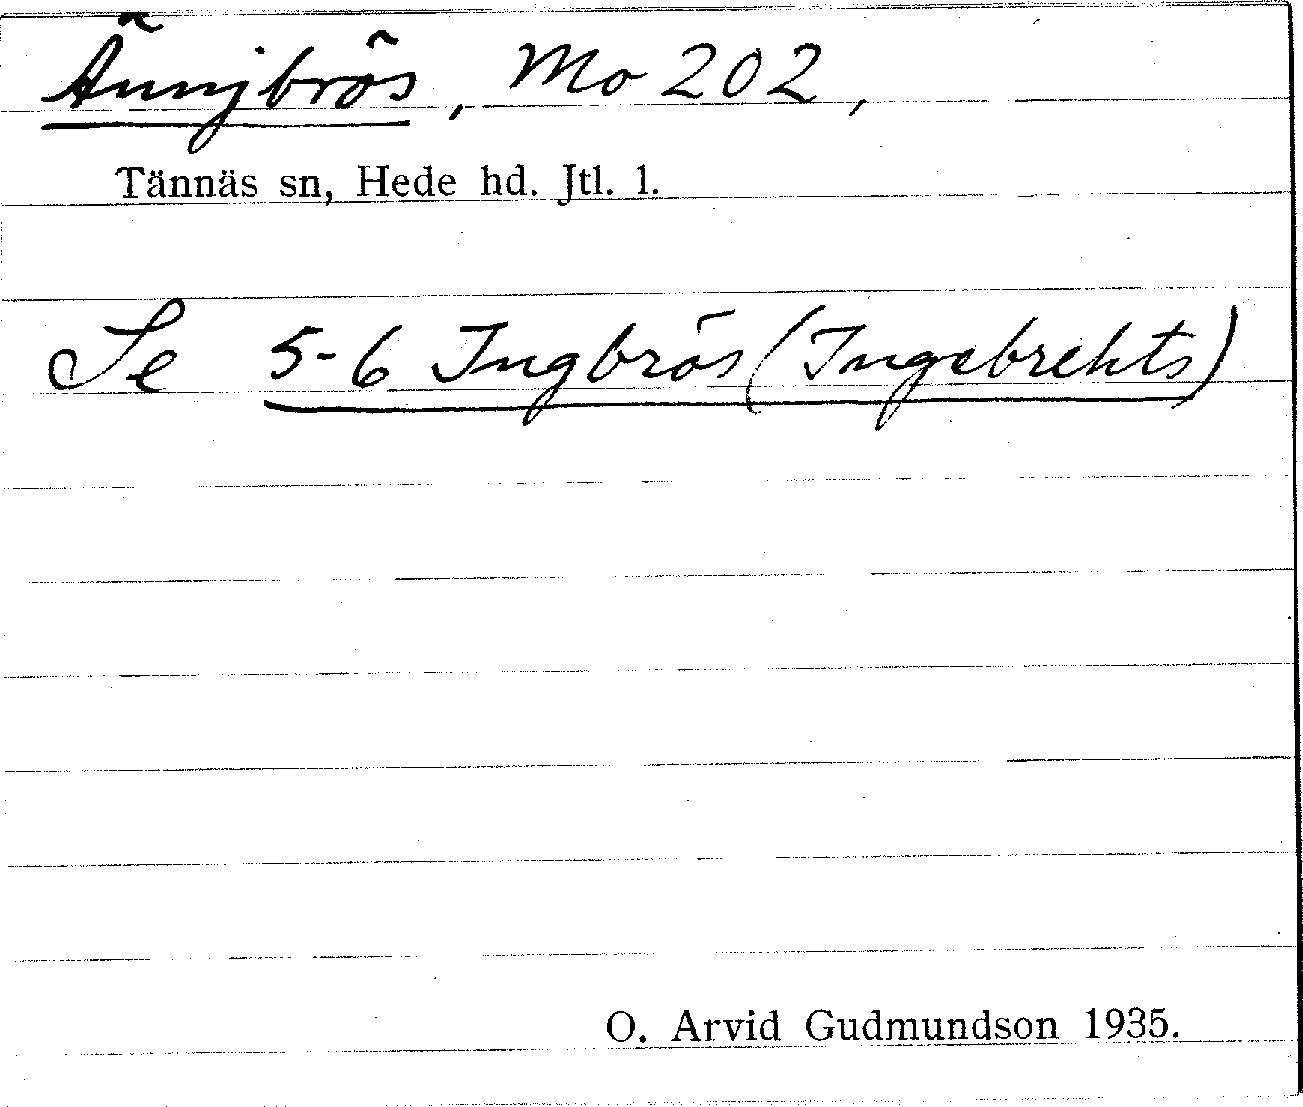 Ännjbrös, Mo 202,
Tännäs sn, Hede hd. Jtl. l.
Se 5-6 Ingbrös (Ingebrehts)
O. Arvid Gudmundson 1935.